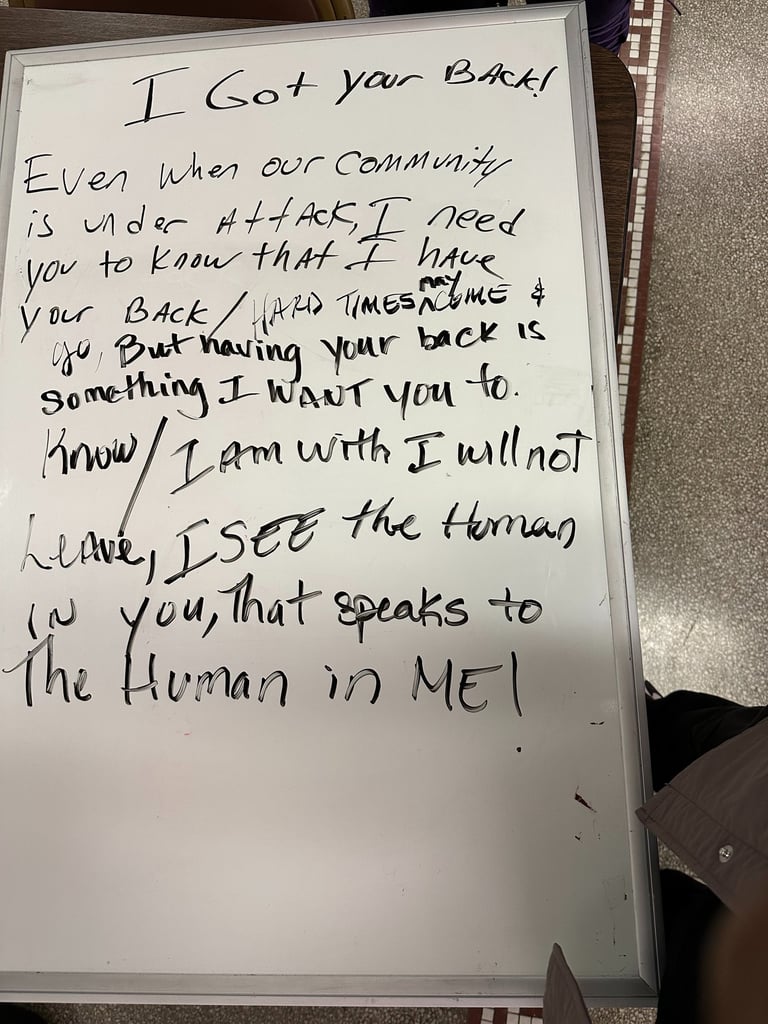 I Got your BAck!
Even when our community
is under AttAck, I need
you to know thAt I hAve
your BAck / HARD TIMES may COME &
go, But having your back is
something I WANT you to.
Know / I am with I will not
Leave, I SEE the Human
in you, That speaks to
The Human in ME!